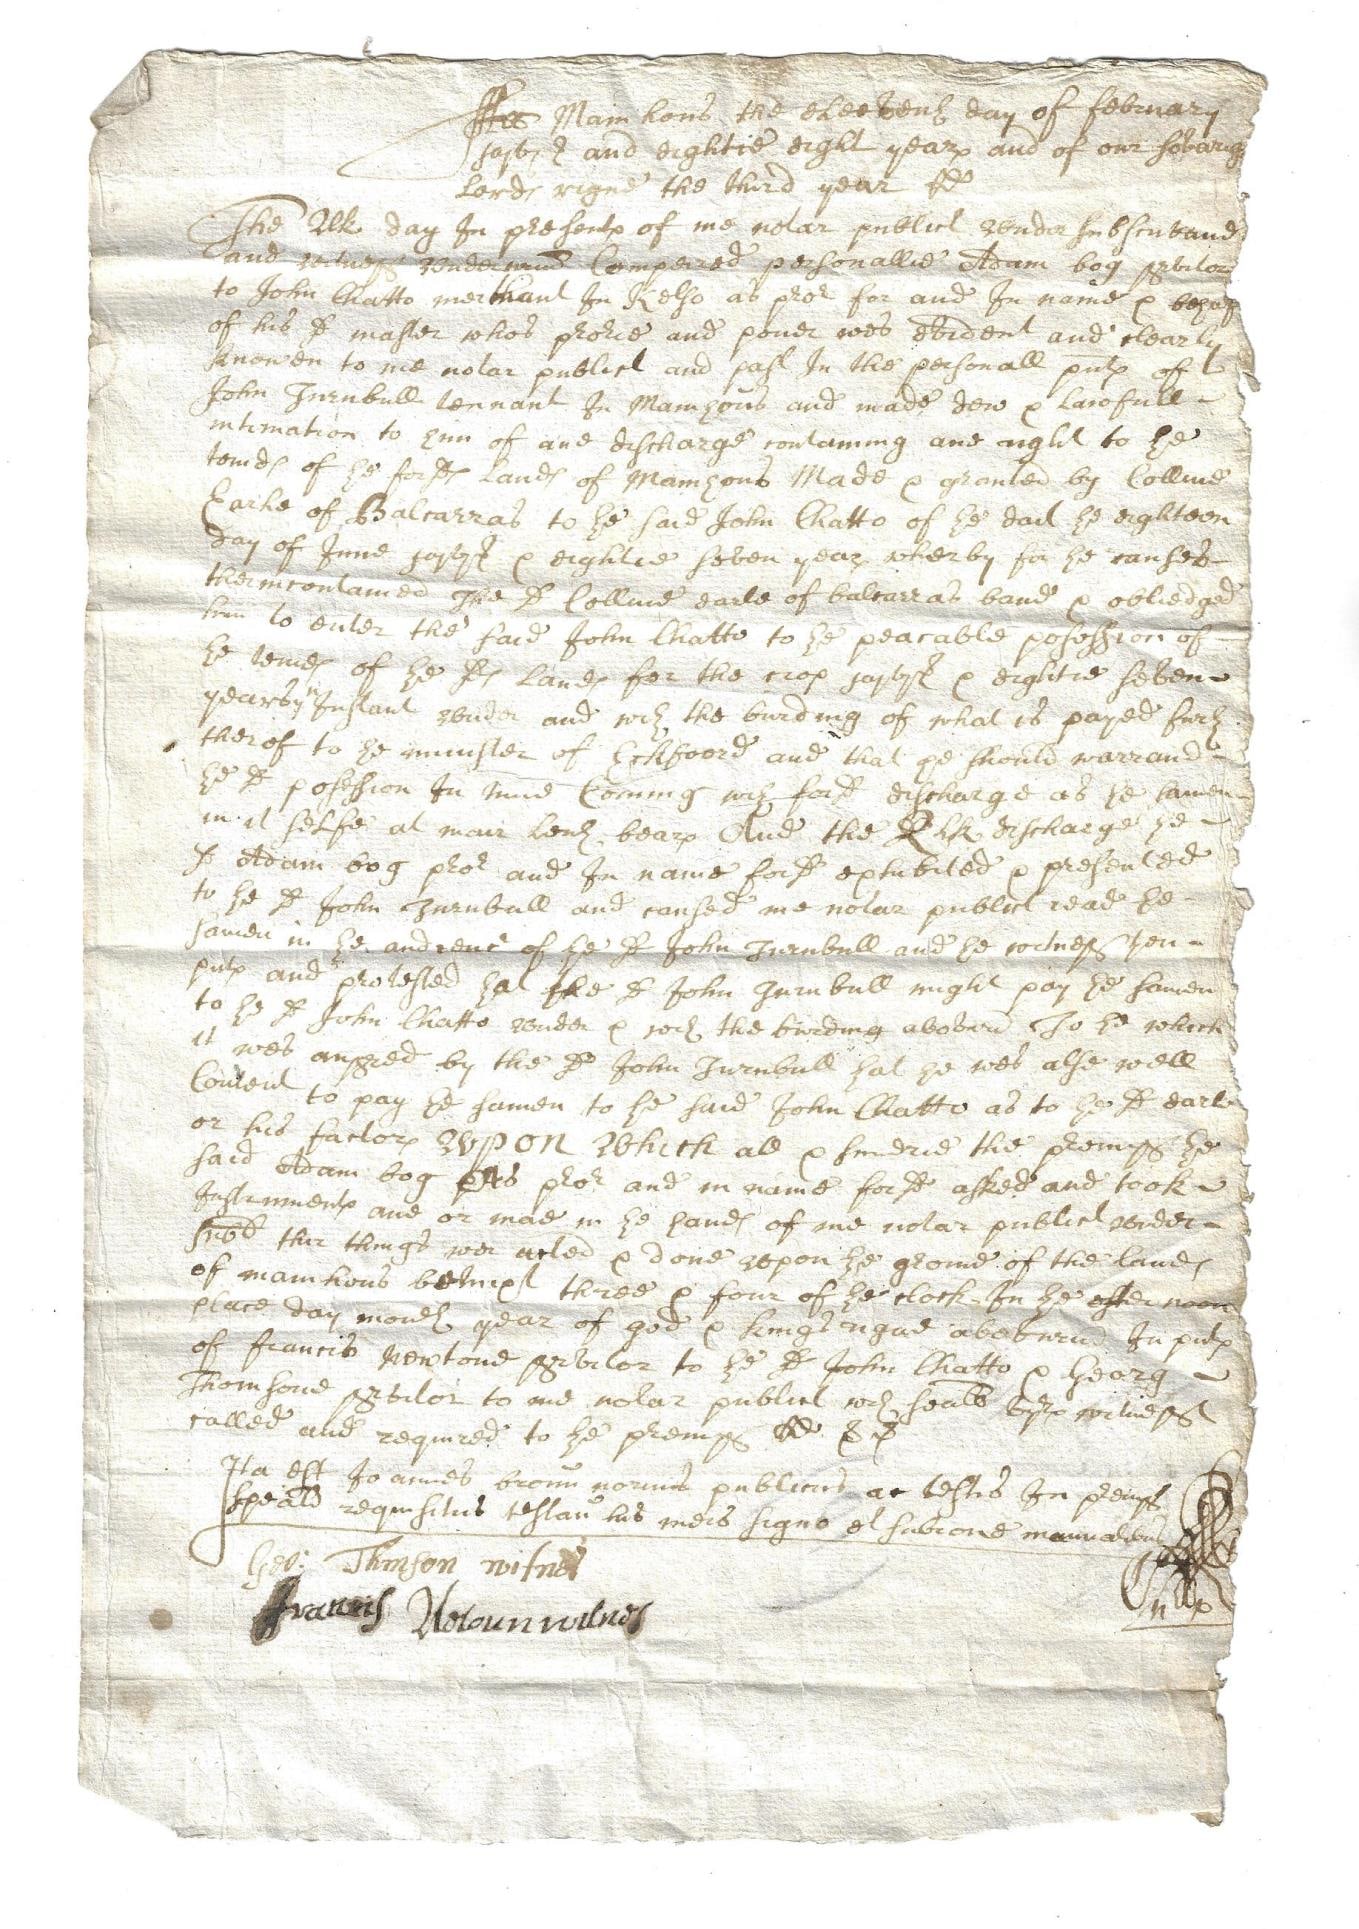 Att Mainhous the eleeventh day of february
jajvj c and eightie eight years and of our soverig
Lords rigne the third year
The Qlk day In presents of me notar publict under subscrivand
and witness underwrin Compeired personallie Adam bog servitor
to John Chatto merchant In Kelso as pror for and In name & behaf
of his sd master whos prorie and pouer wes evident and clearly
knowen to me notar publict and past In the personall pnts of
John Turnbull tennant In Mainhous and made dew & lawfull
intimation to him of ane discharge contaning ane right to þe
teinds of þe forsds Lands of Mainhous Made & granted by Colline
Earle of Balcarras to þe said John Chatto of þe dait þe eighteen
day of June jajvjc & eightie seven years wherby for þe causes
therincontained The sd Colline earle of balcarras band & obliedged
him to enter the said John Chatto to þe peacable posession of
þe teinds of þe sds Lands for the crop jajvjc & eightie seven
years Instant under and with the burding of what is payed furth
therof to þe minister of Eckfoord and that he should warrand
þe sd posession In time Coming with forsd discharge as þe samen
in it selfe at mair lenth bears And the Qlk discharge þe
sd Adam bog pror and In name forsd exhibited & presented
to þe sd John Turnbull and caused me notar publict read þe
samen in þe audience of þe sd John Turnbull and þe witness þen
pnts and protested þat the sd John Turnbull might pay þe samen
to þe sd John Chatto under & with the burding abovewrin To þe which
it wes ansred by the sd John Turnbull þat he wes alse well
Content to pay þe samen to þe said John Chatto as to þe sd earle
or his factors Upon Which all & sundrie the premiss þe
said Adam bog As pror and in name forsd asked and took
Instruments ane or mae in þe hands of me notar publict under
subd thir things wer acted & done upon þe ground of the lands
of mainhous betwixt three & four of þe clock In þe efter noon
place day month year of god & kings rigne abovewrin In pnts
of francis Newtone servitor to þe sd John Chatto & Georg
Thomsone servitor to me notar publict with witness
called and required to þe premiss
Ita est Joannes broun norius publicus ac testis In premiss
speālr requisitus testan his meis signo et subrone manualibus
Geo: Thmson witnes
francis Netoun witnes